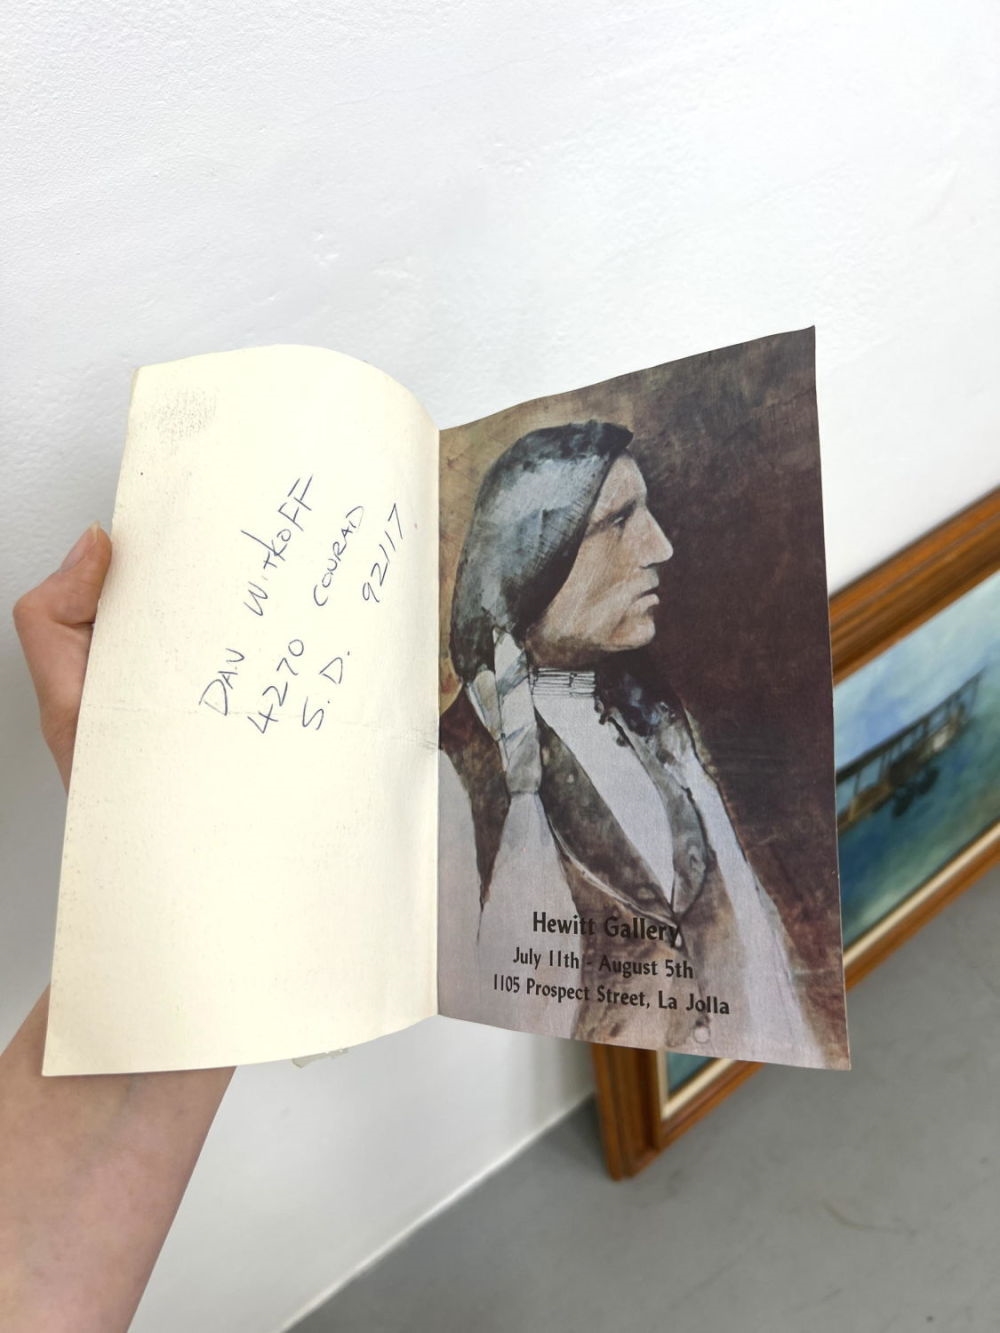 DAN WITKOFF
4270 CONRAD
S.D. 92117
Hewitt Gallery
July 11th - August 5th
1105 Prospect Street, La Jolla